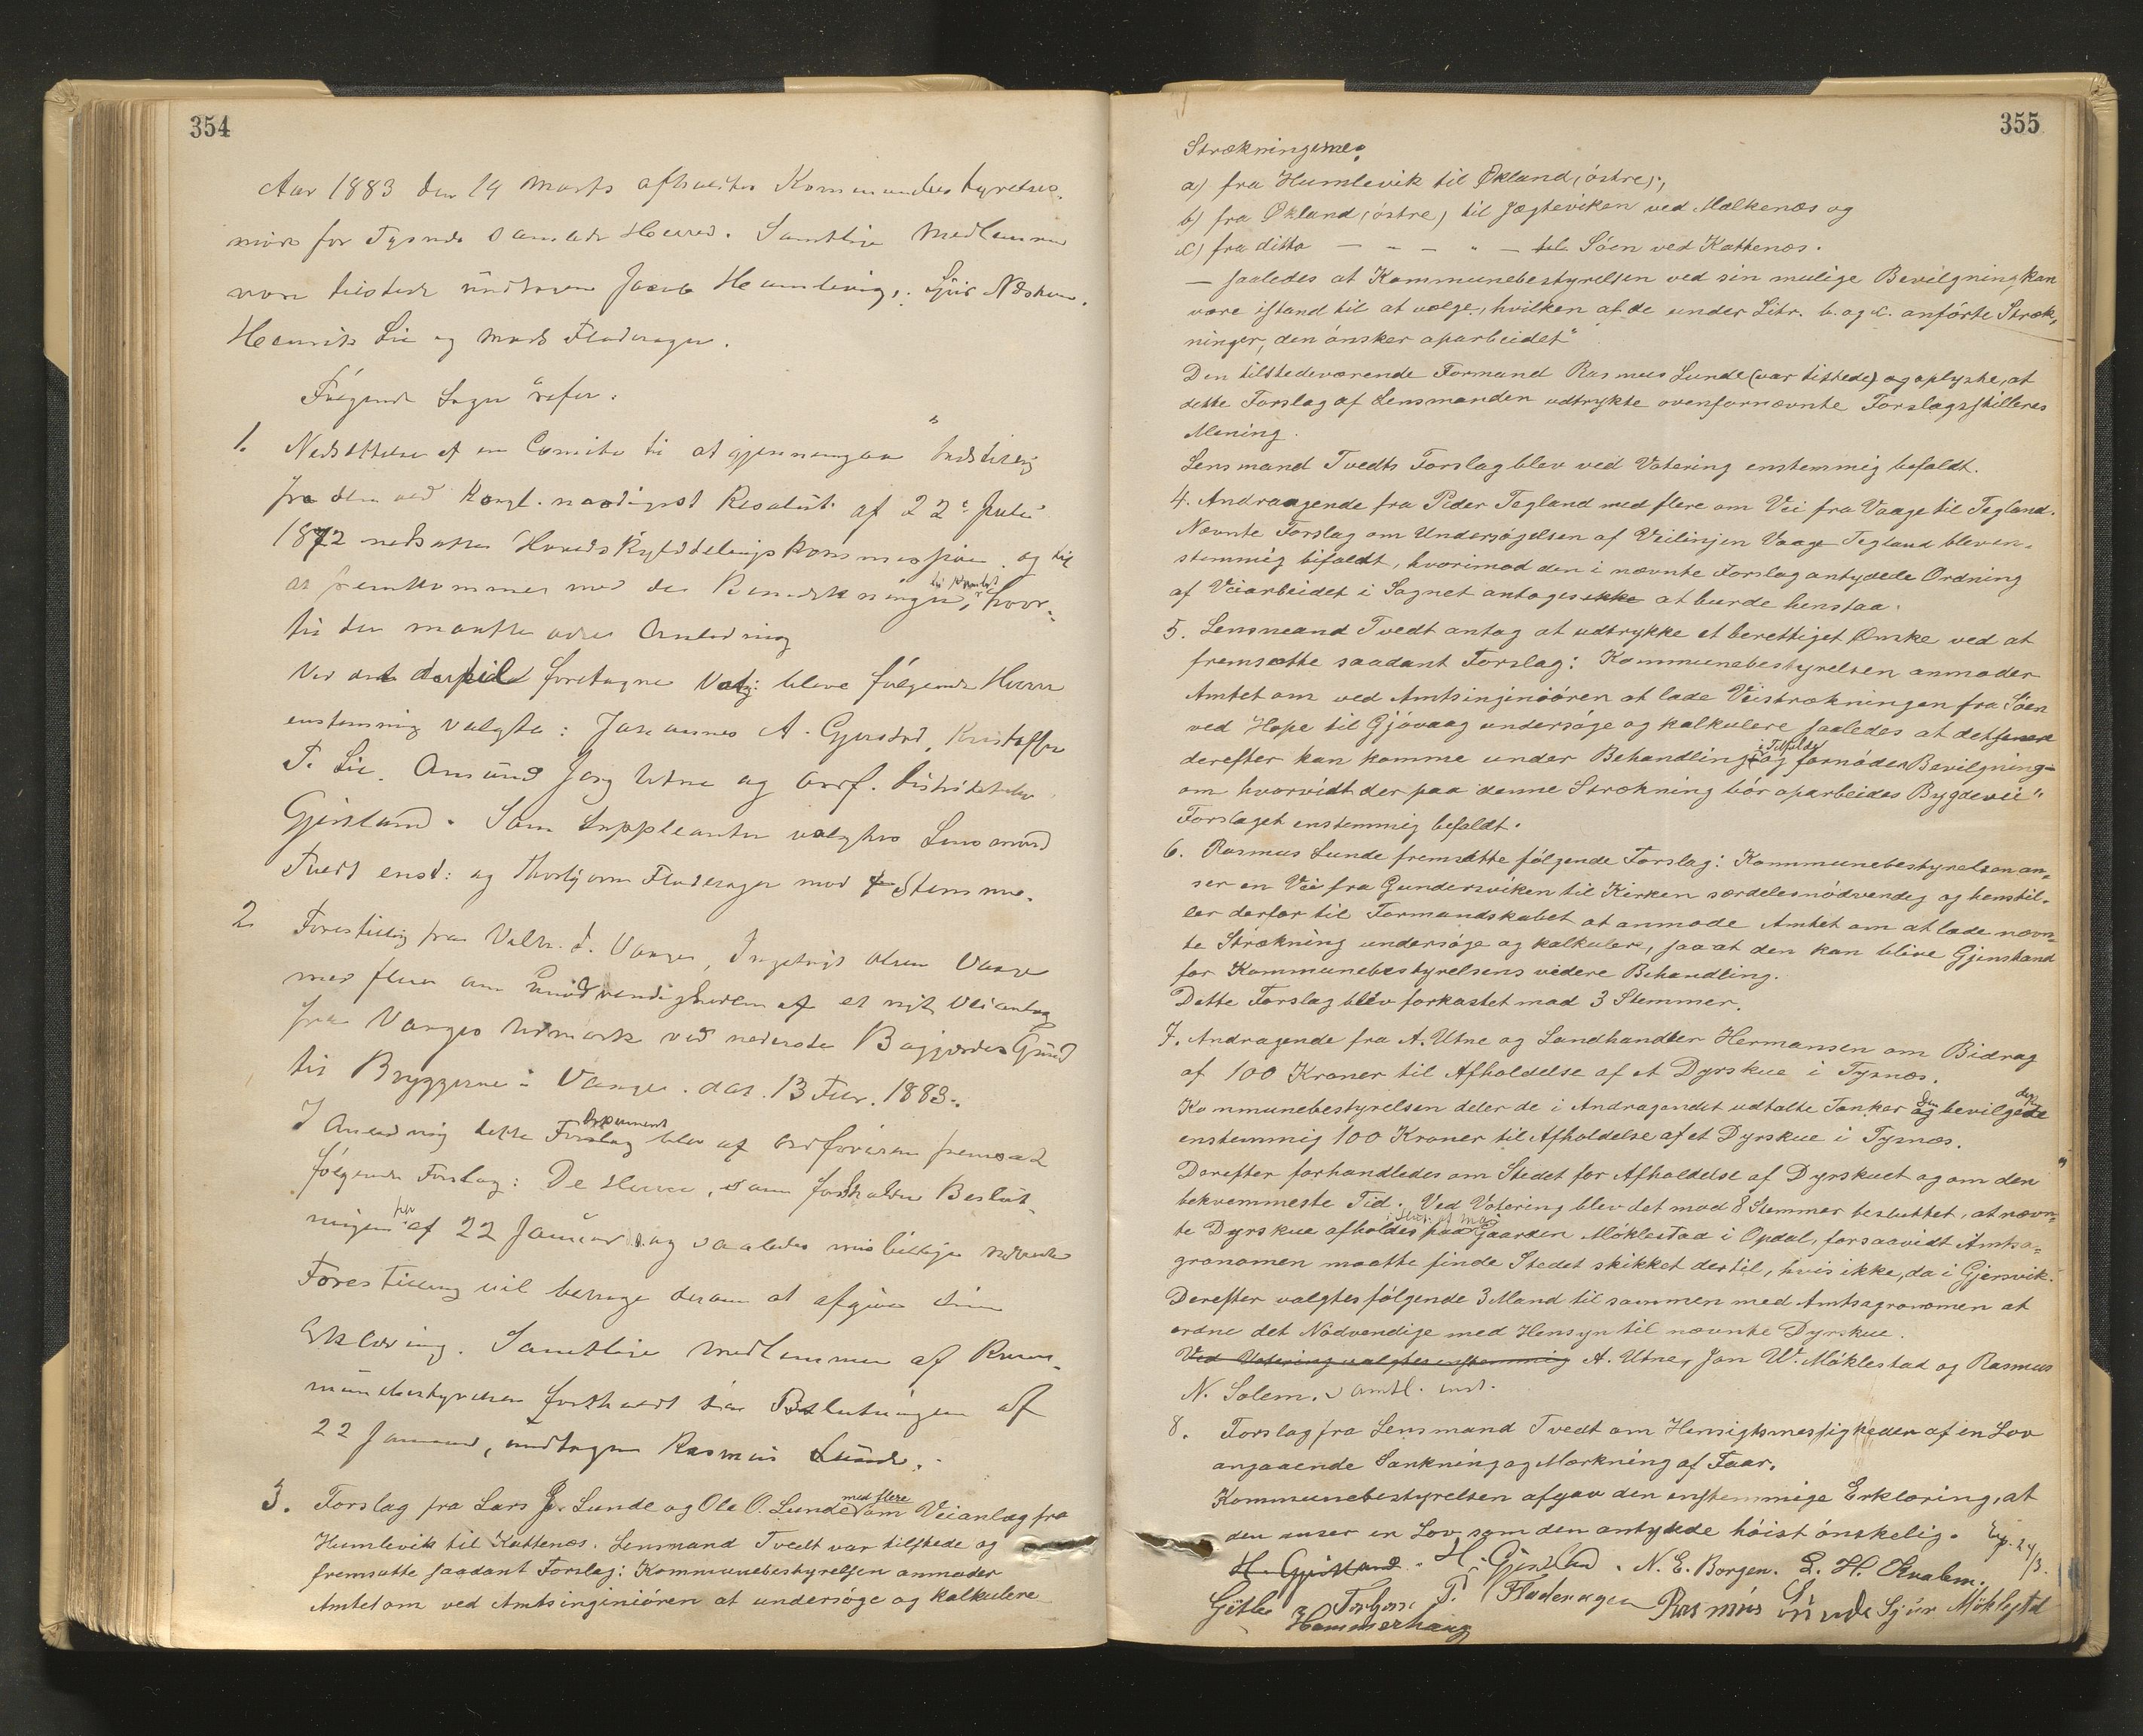 354
Aar 1883 den 14 Marts afholdtes Kommunebestyrelses-
møde for Tysnæs samlede Herred. Samtlige Medlemmer
vare tilstede undtagen Jacob Humlevig, Sjur
Henrik Lie og Mads Fladerager.
Følgende Sager refer.
1. Nedsættelse af en Comite til at gjennemgaa Indstilling
fra den ved Kongl. naadigst Resolut. af 22de Juli
1872 nedsatte HerredsKommission og til
at fremkomme med de Bemærkninger, hvor-
til der maatte være Anledning
Ved det dertil foretagne Valg: bleve følgende Herrer
enstemmig valgte: Johannes A. Gjerstad, Kristoffer
T. Lie. Amund Utne og Ordf.
Gjerstad. Som Suppleanter valgtes Lensmand
Tvedt enst: og Thorbjørn Fladerager med Stemme.
2. Forestilling fra Vaage, Ingebrigt Olsen Vaage
med flere om Nødvendigheden af et nyt Veianlæg
fra Vaages Udmark ved nederste Grind
til Bryggerne i Vaage. dat. 13 Febr. 1883.
I Anledning dette Forslag blev af Ordføreren fremsat
følgende Forslag: De Herrer, som fastholder Beslut-
ningen af 22 Januar og saaledes misbilliger nævnte
Forestilling vil behage derom at afgive sin
Erklæring. Samtlige Medlemmer af Kom-
munebestyrelsen fastholdt sin Beslutningen af
22 Januar, undtagen Rasmus Lunde.
3. Forslag fra Lars J. Lunde og Ole O. Lunde med flere om Veianlæg fra
Humlevik til Kattenæs. Lensmand Tvedt var tilstede og
fremsatte saadant Forslag: Kommunebestyrelsen anmoder
Amtet om ved Amtsingeniören at undersöge og kalkulere
355
Strækningerne:
a) fra Humlevik til Økland (östre);
b) fra Økland (östre) til Jægteviken ved Malkenæs og
c) fra ditto — - - - " - til Söen ved Kattenæs.
— saaledes at Kommunebestyrelsen ved sin mulige Bevilgning kan
være istand til at vælge, hvilken af de under Litr. b. og c. anförte Stræk-
ninger, den önsker oparbeidet"
Den tilstedeværende Formand Rasmus Lunde (var tistede) og oplyste, at
dette Forslag af Lensmanden udtrykte ovenfornævnte Forslagsstilleres
Mening.
Lensmand Tvedts Forslag blev ved Votering enstemmig befaldt.
4. Andraagende fra Peder Tegland med flere om Vei fra Vaage til Tegland.
Nævnte Forslag om Undersögelsen af Veilinjen Vaage Tegland bleven-
stemmig bifaldt, hvorimod den i nævnte Forslag antydede Ordning
af Veiarbeidet i Sognet antoges ikke at burde henstaa.
5. Lensmand Tvedt antog at udtrykke et berettiget Ønske ved at
fremsætte saadant Forslag: Kommunebestyrelsen anmoder
Amtet om ved Amtsingeniören at lade Veistrækningen fra Söen
ved Hope til Gjövaag undersöge og kalkulere saaledes at det senere
derefter kan komme under Behandling og i Tilfælde fornöden Bevilgning-
om hvorvidt der paa denne Strækning bör oparbeides Bygdevei"
Forslaget enstemmig befaldt.
6. Rasmus Lunde fremsatte fölgende Forslag: Kommunebestyrelsen an-
ser en Vei fra Gundersviken til Kirken særdelesnödvendig og henstil-
ler derfor til Formandskabet at anmode Amtet om at lade nævn-
te Strækning undersöge og kalkuler, saa at den kan blive Gjenstand
for Kommunebestyrelsens videre Behandling.
Dette Forslag blev forkastet mod 3 Stemmer.
7. Andragende fra A. Utne og Landhandler Hermansen om Bidrag
af 100 Kroner til Afholdelse af et Dyrskue i Tysnæs.
Kommunebestyrelsen deler de i Andragendet udtalte Tanker og bevilgede
enstemmig 100 Kroner til Afholdelse af et Dyrskue i Tysnæs.
Derefter forhandledes om Stedet for Afholdelse af Dyrskuet og om den
bekvemmeste Tid. Ved Votering blev det mod 8 Stemmer besluttet, at nævn-
te Dyrskue afholdes paa Gaarden Möklestad i Opdal, forsaavidt Amtsa-
gronomen maatte finde Stedet skikket dertil, hvis ikke, da i Gjersvik.
Derefter valgtes fölgende 3 Mand til sammen med Amtsagronomen at
ordne det Nödvendige med Hensyn til nævnte Dyrskue.
Ved Votering valgtes enstemmig A. Utne, Jan W. Möklestad og Rasmus
N. Solem. samtl. enst.
8. Forslag fra Lensmand Tvedt om Hensigtsmessigheden af en Lov
angaaende Sankning og Mærkning af Faar.
Kommunebestyrelsen afgav den enstemmige Erklæring, at
den anser en Lov som den antydede höist önskelig. Exp. 24/3.
H. Gjerstad. H. Gjerstad. N. E. Borgen. L. H. Kvalem.
Gitle Hammerhaug Torbjørn T. Fladerager Rasmus Lunde Sjur Möklestd